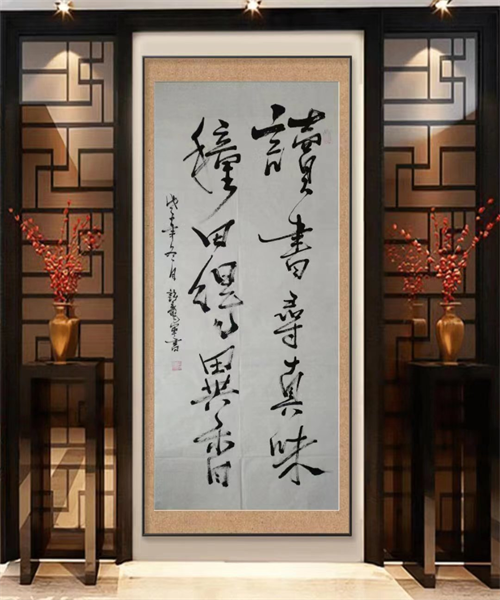 讀書尋真味
種田得異香
戊子年冬月書